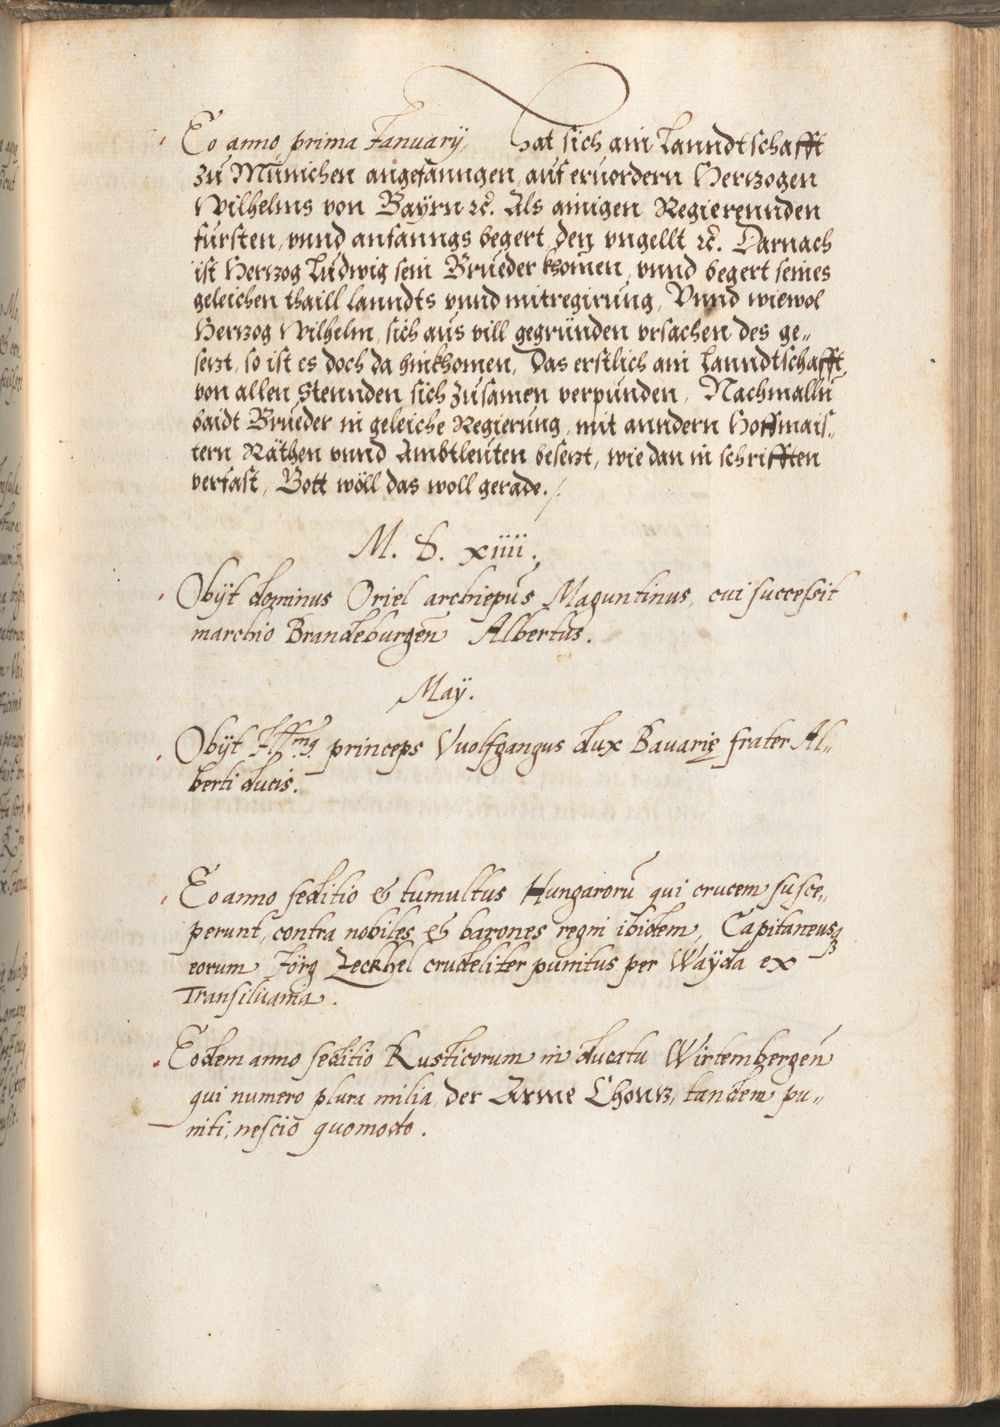 Eo anno prima Januarÿ, hat sich ain Lanndtschafft
zu Münichen angefanngen, auf eruordern Hertzogen
Wilhelms von Baÿrn ꝛc. Als ainigen Regierennden
fürsten, vnnd anfanngs begert, den vngellt ꝛc. Darnach
ist Hertzog Ludwig sein Brueder khomen, vnnd begert seines
geleichen thaill lanndts vnnd mitregirung, Vnnd wiewol
Hertzog Wilhelm, sich aus vill gegründen vrsachen des ge„
setzt, so ist es doch da hinkhomen, Das erstlich ain Lanndtschafft,
von allen Stennden sich zusamen verpunden, Nachmalln̄
baidt Brueder in geleiche Regierung, mit anndern Hoffmais„
tern Räthen vnnd Ambtleuten besetzt, wie dan in schrifften
verfast, Gott wöll das woll gerade.
M. D. xiiii.
Obÿt dominus Oriel archiepūs Maguntinus, cui successit
marchio Brandeburgen̄ Albertus.
Maÿ.
Obÿt Jllsmꝰ princeps Vuolfgangus dux Bauarię frater Al„
berti ducis.
Eo anno seditio & tumultus Hungarorū qui crucem susce„
perunt, contra nobiles & barones regni ibidem, Capitaneus
eorum Jörg Zeckhel crudeliter punitus per Waÿda ex
Transiluania.
Eodem anno seditio Rusticorum in ducatu Wirtembergen̄
qui numero plura milia, der Arme Chonrz, tandem pu„
niti, nescio quomodo.